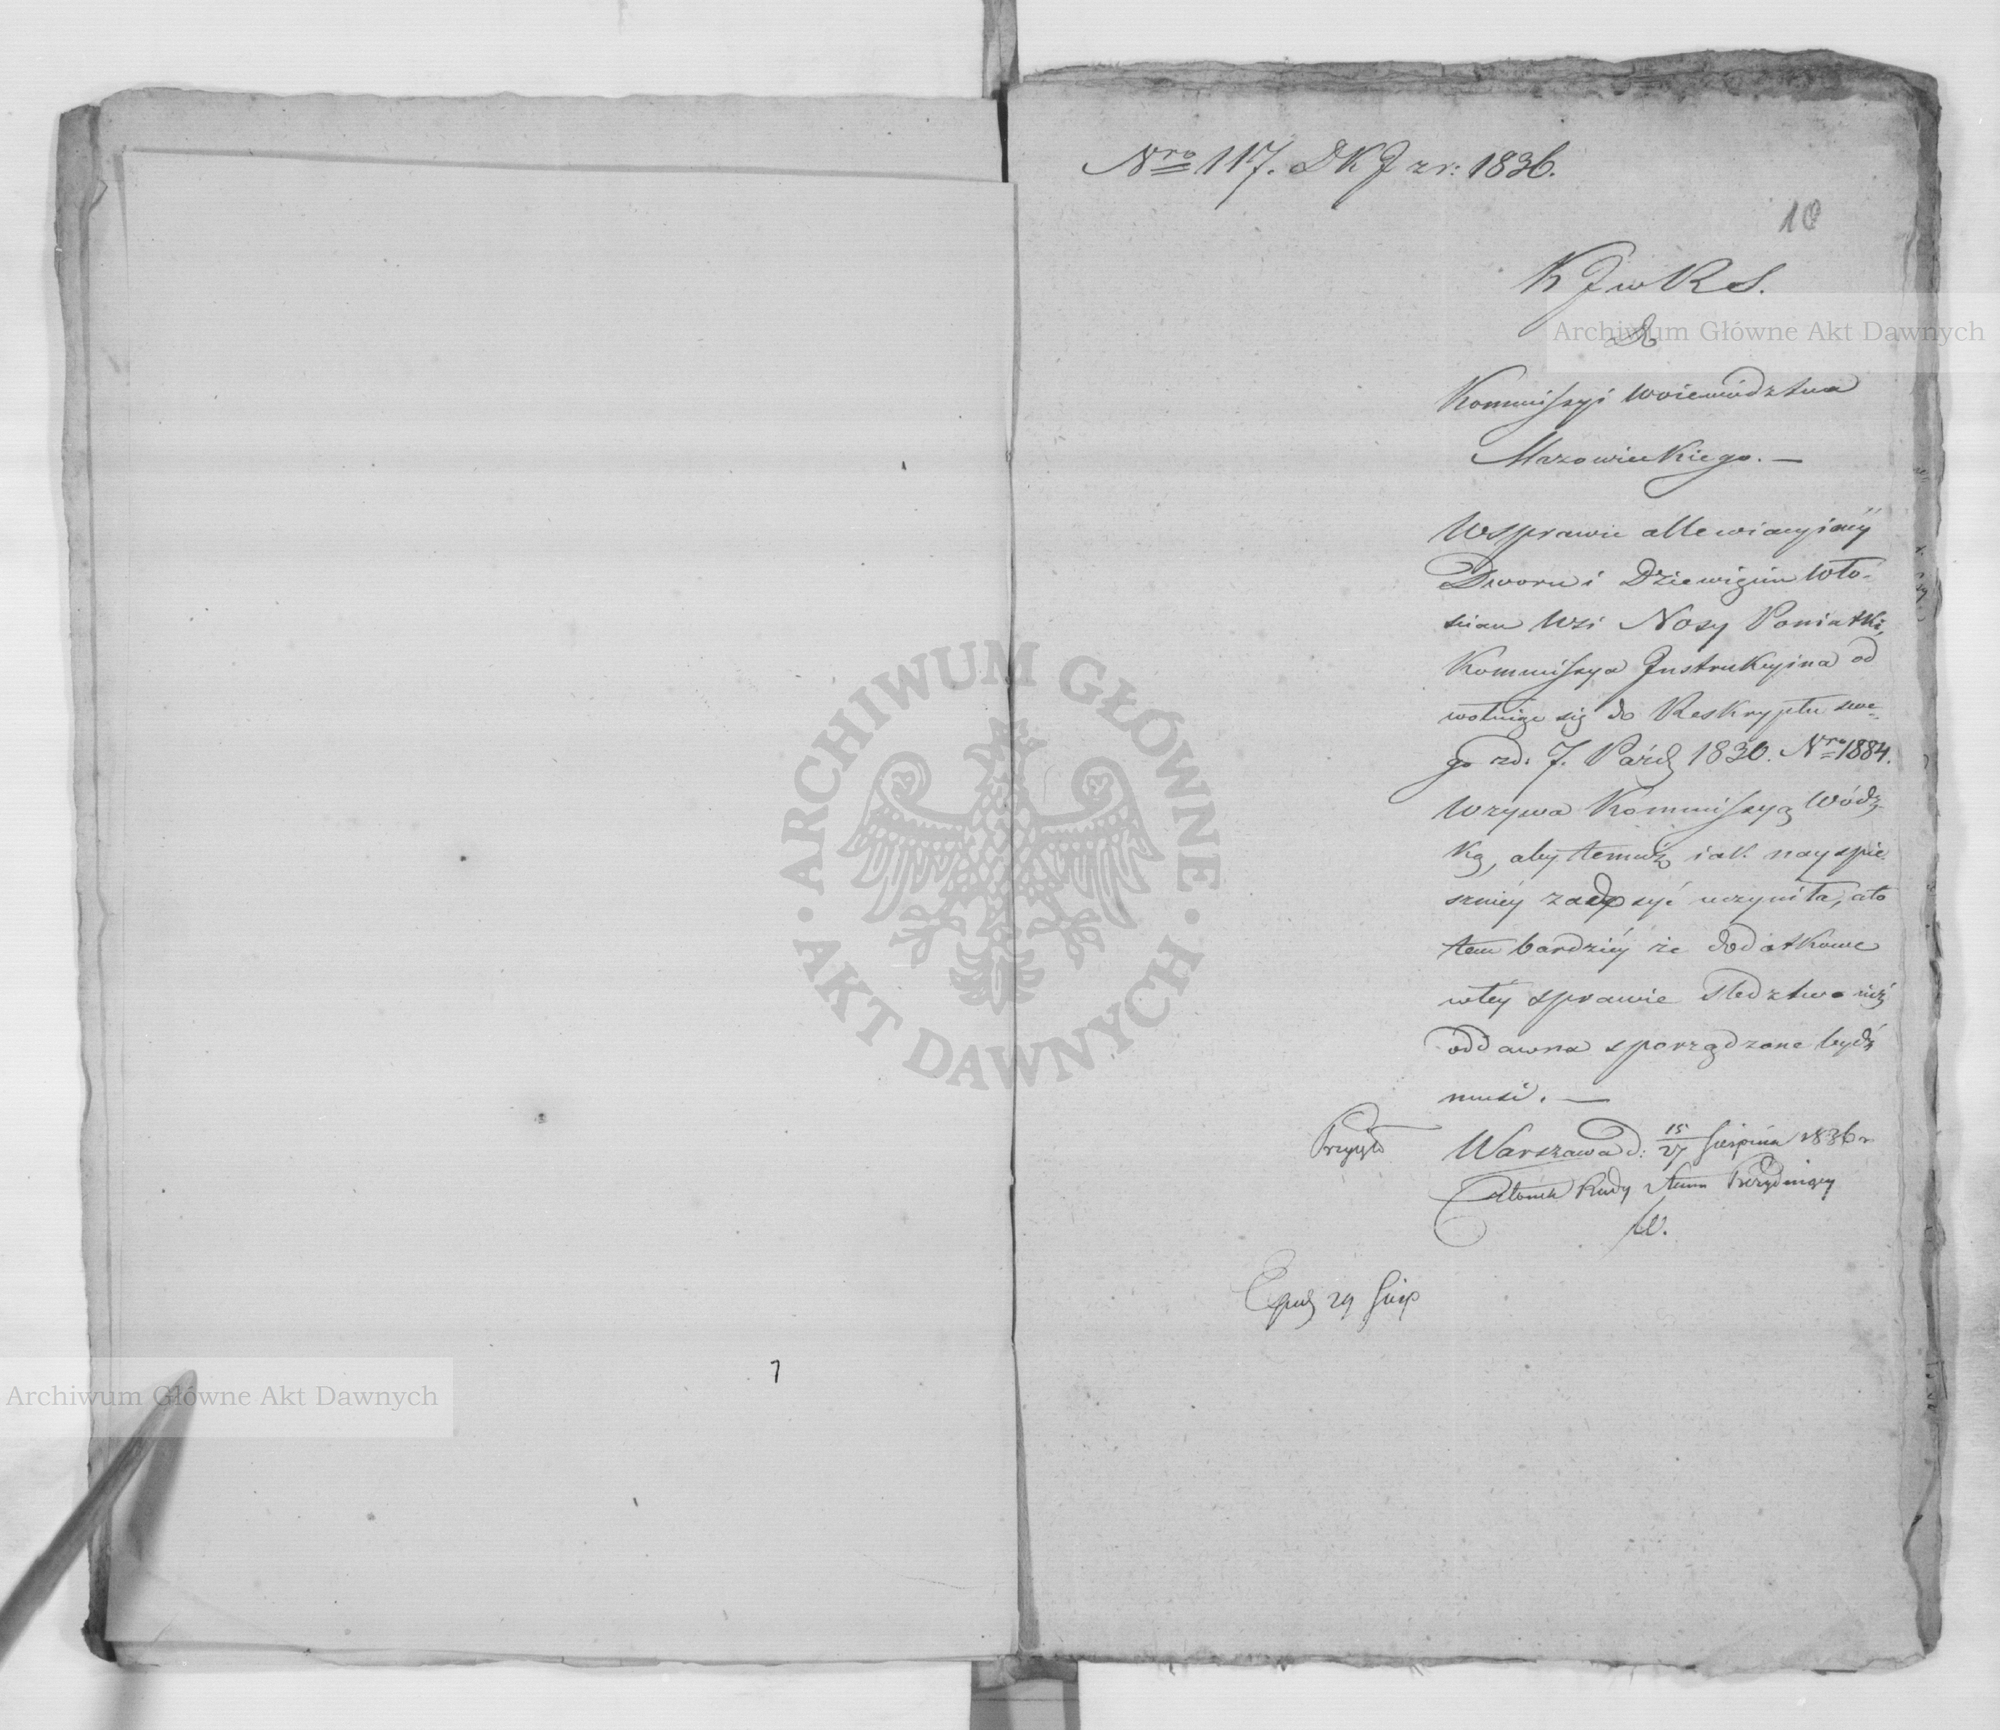 Nro 117. DKJ zr: 1836.
10
K J w R S.
Do
Kommissyi Woiewództwa
Mazowieckiego. —
W sprawie allewiacyinéy
Dworu i Dziewięciu Wło-
scian Wsi Nosy Poniatki,
Kommissya Instrukcyina od
wołuiąc się do Reskryptu swe-
go zd. 7. Paźdz 1830. Nro 1884.
Wzywa Kommissyą Wódz-
ką, aby temuż iak nayspie-
szniéy zadosyć uczyniła, a to
tem bardziéy że dodatkowe
w téy sprawie sledztwo iuż
oddawna sporządzone bydź
musi. —
Warszawa d: 15/27 Sierpnia 1836 r
Członek Rady Stanu Prezyduiący
Exped 29 Sierp
7
ARCHIWUM GŁÓWNE
AKT DAWNYCH
Archiwum Główne Akt Dawnych
Archiwum Główne Akt Dawnych